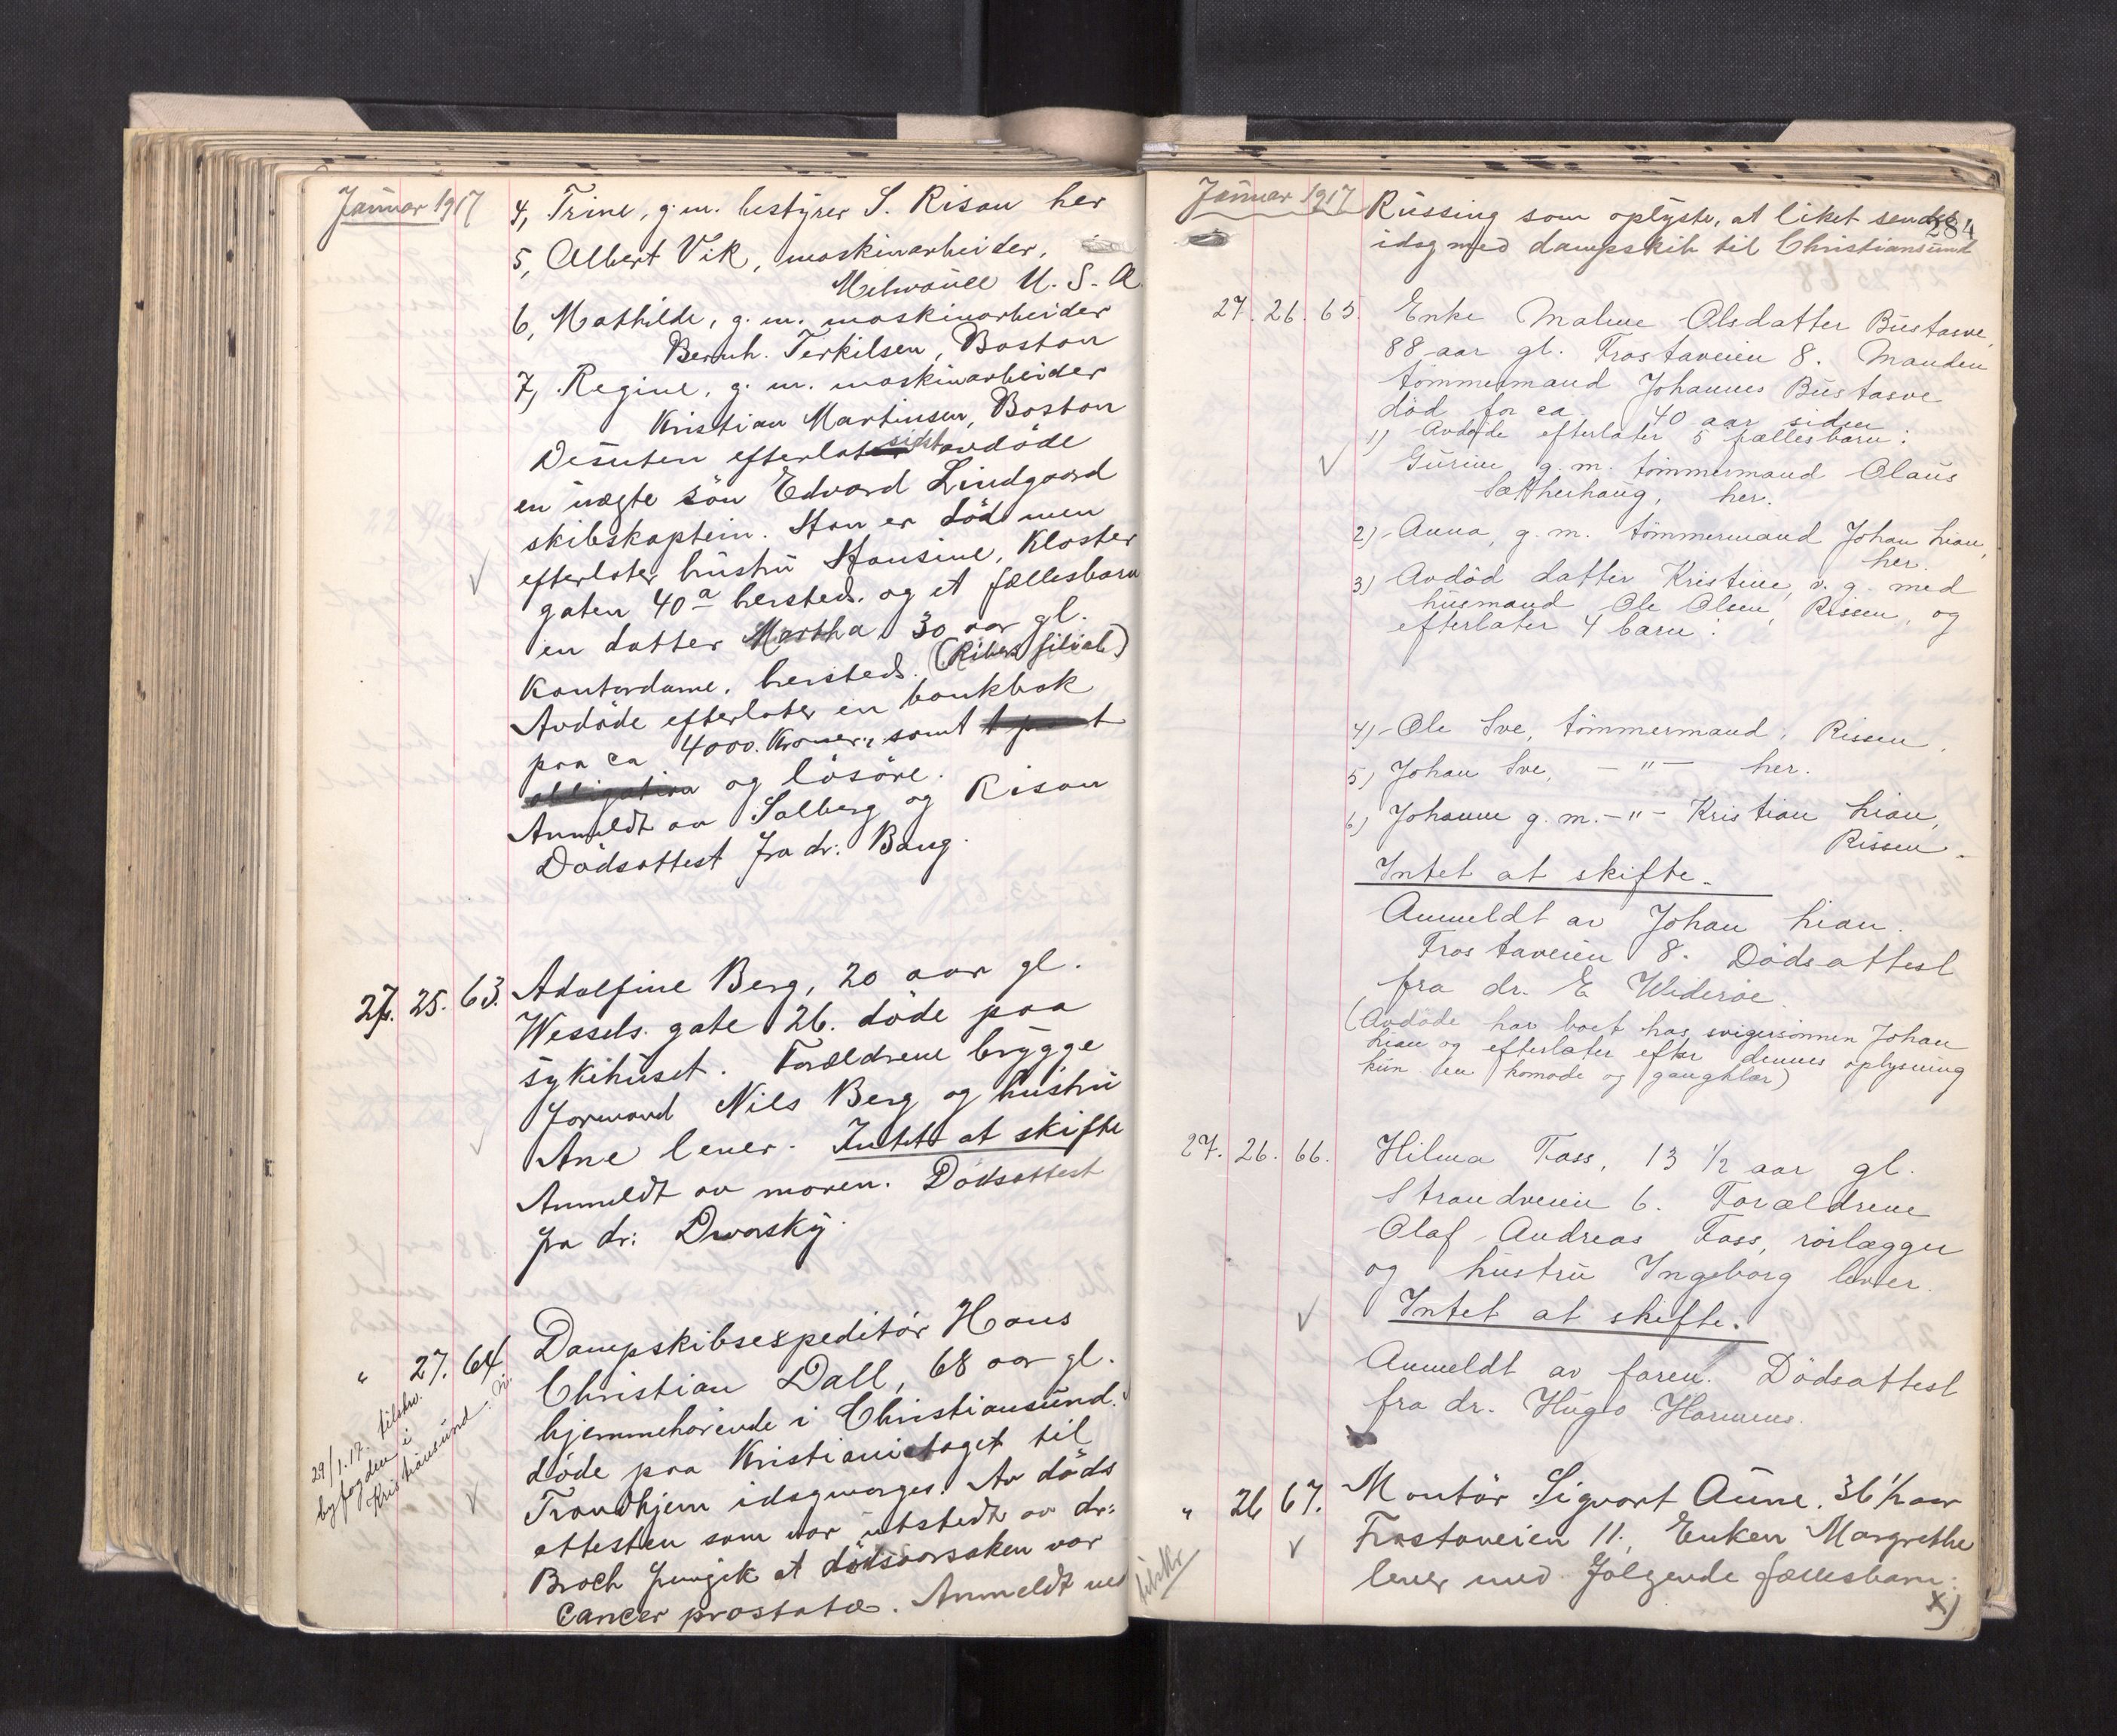 Januar 1917
4, Trine, g. m. bestyrer S. Risan her
5, Albert Vik, maskinarbeider,
U. S. A
6, Mathilde, g. m. maskinarbeider
Bernh. Terkilsen, Boston
7, Regine, g. m. maskinarbeider
Kristian Martinsen, Boston
Desuten efterlot sidstavdöde
en uægte sön Edvard Lindgaard
skibskaptein. Han er död men
efterlater hustru Hansine, Kloster
gaten 40 a hersteds. og et fællesbarn
en datter Martha 30 aar gl.
Kontordame, hersteds. (Ribers filial)
Avdöde efterlater en bankbok
paa ca 4000. Kroner, samt
obligation og lösöre.
Anmeldt av Solberg og Risan
Dödsattest fra dr: Bang.
27. 25. 63. Adolfine Berg, 20 aar gl.
Wessels. gate 26. döde paa
sykehuset. Forældrene brygge
formand Nils Berg og hustru
Ane lever. Intet at skifte
Anmeldt av moren. Dödsattest
fra dr: Dworsky.
" 27. 64 Dampskibsexpeditör Hans
Christian Dall, 68 aar gl.
hjemmehörende i Christiansund.
döde paa Kristianiataget til
Trondhjem idagmorges. Av döds
attesten som var utstedt av dr:
Broch fremgik at dödsaarsaken var
Cancer prostatæ. Anmeldt ved
29/1. 17. tilskr.
byfogden i
Kristiansund. N.
Januar 1917
284
Russing som oplyste, at liket sendes
idag med dampskib til Christiansund
27. 26. 65. Enke Malene Olsdatter Bustasve,
88 aar gl. Frostaveien 8. Manden
tömmermand Johannes Bustasve
död for ca. 40 aar siden
Avdöde efterlater 5 fællesbarn:
1) Gurine g. m. tömmermand Olaus
Sætherhaug, her.
2) Anna, g. m. tömmermand Johan Lian,
her.
3) Avdöd datter Kristine, v. g. med
husmand Ole Olsen, Rissen, og
efterlater 4 barn:
4) Ole Sve, tömmermand, Rissen,
5) Johan Sve, — " — her.
6) Johanne g. m. - " - Kristian Lian,
Rissen.
Intet at skifte.
Anmeldt av Johan Lian.
Frostaveien 8. Dödsattest
fra dr. E Wideröe.
(Avdöde har boet hos svigersönnen Johan
Lian og efterlater efter dennes oplysning
kun en komode og gangklær)
27. 26. 66. Hilma Foss, 13 1/2 aar gl.
Strandveien 6. Forældrene
Olaf Andreas Foss, rörlægger
og hustru Ingeborg lever.
Intet at skifte.
Anmeldt av faren. Dödsattest
fra dr. Hugo Hannus.
" 26 67. Montör Sigvart Aune. 36 1/2 aar
Frostaveien 11. Enken Margrethe
lever med følgende fællesbarn:
x)
tilskr